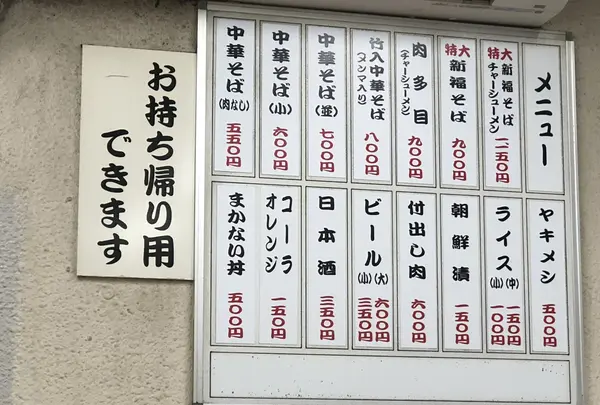 メニュー
特大新福そば
(チャーシューメン)
一二五〇円
特大新福そば
九〇〇円
肉多目
(チャーシューメン)
九〇〇円
竹入中華そば
(メンマ入り)
八〇〇円
中華そば(並)
七〇〇円
中華そば(小)
六〇〇円
中華そば(肉なし)
五五〇円
ヤキメシ
五〇〇円
ライス(中)(小)
一五〇円
一〇〇円
朝鮮漬
一五〇円
付出し肉
六〇〇円
ビール(大)(小)
六〇〇円
三五〇円
日本酒
三五〇円
コーラ
オレンジ
一五〇円
まかない丼
五〇〇円
お持ち帰り用
できます